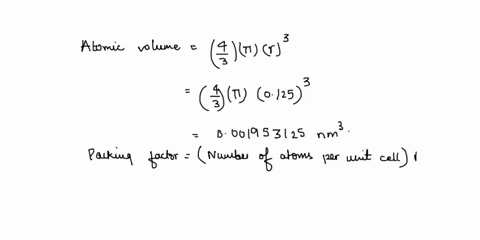 Atomic volume = (4/3)(π)(r)^3
= (4/3)(π) (0.125)^3
= 0.001953125 nm^3.
Packing factor = (Number of atoms per unit cell)